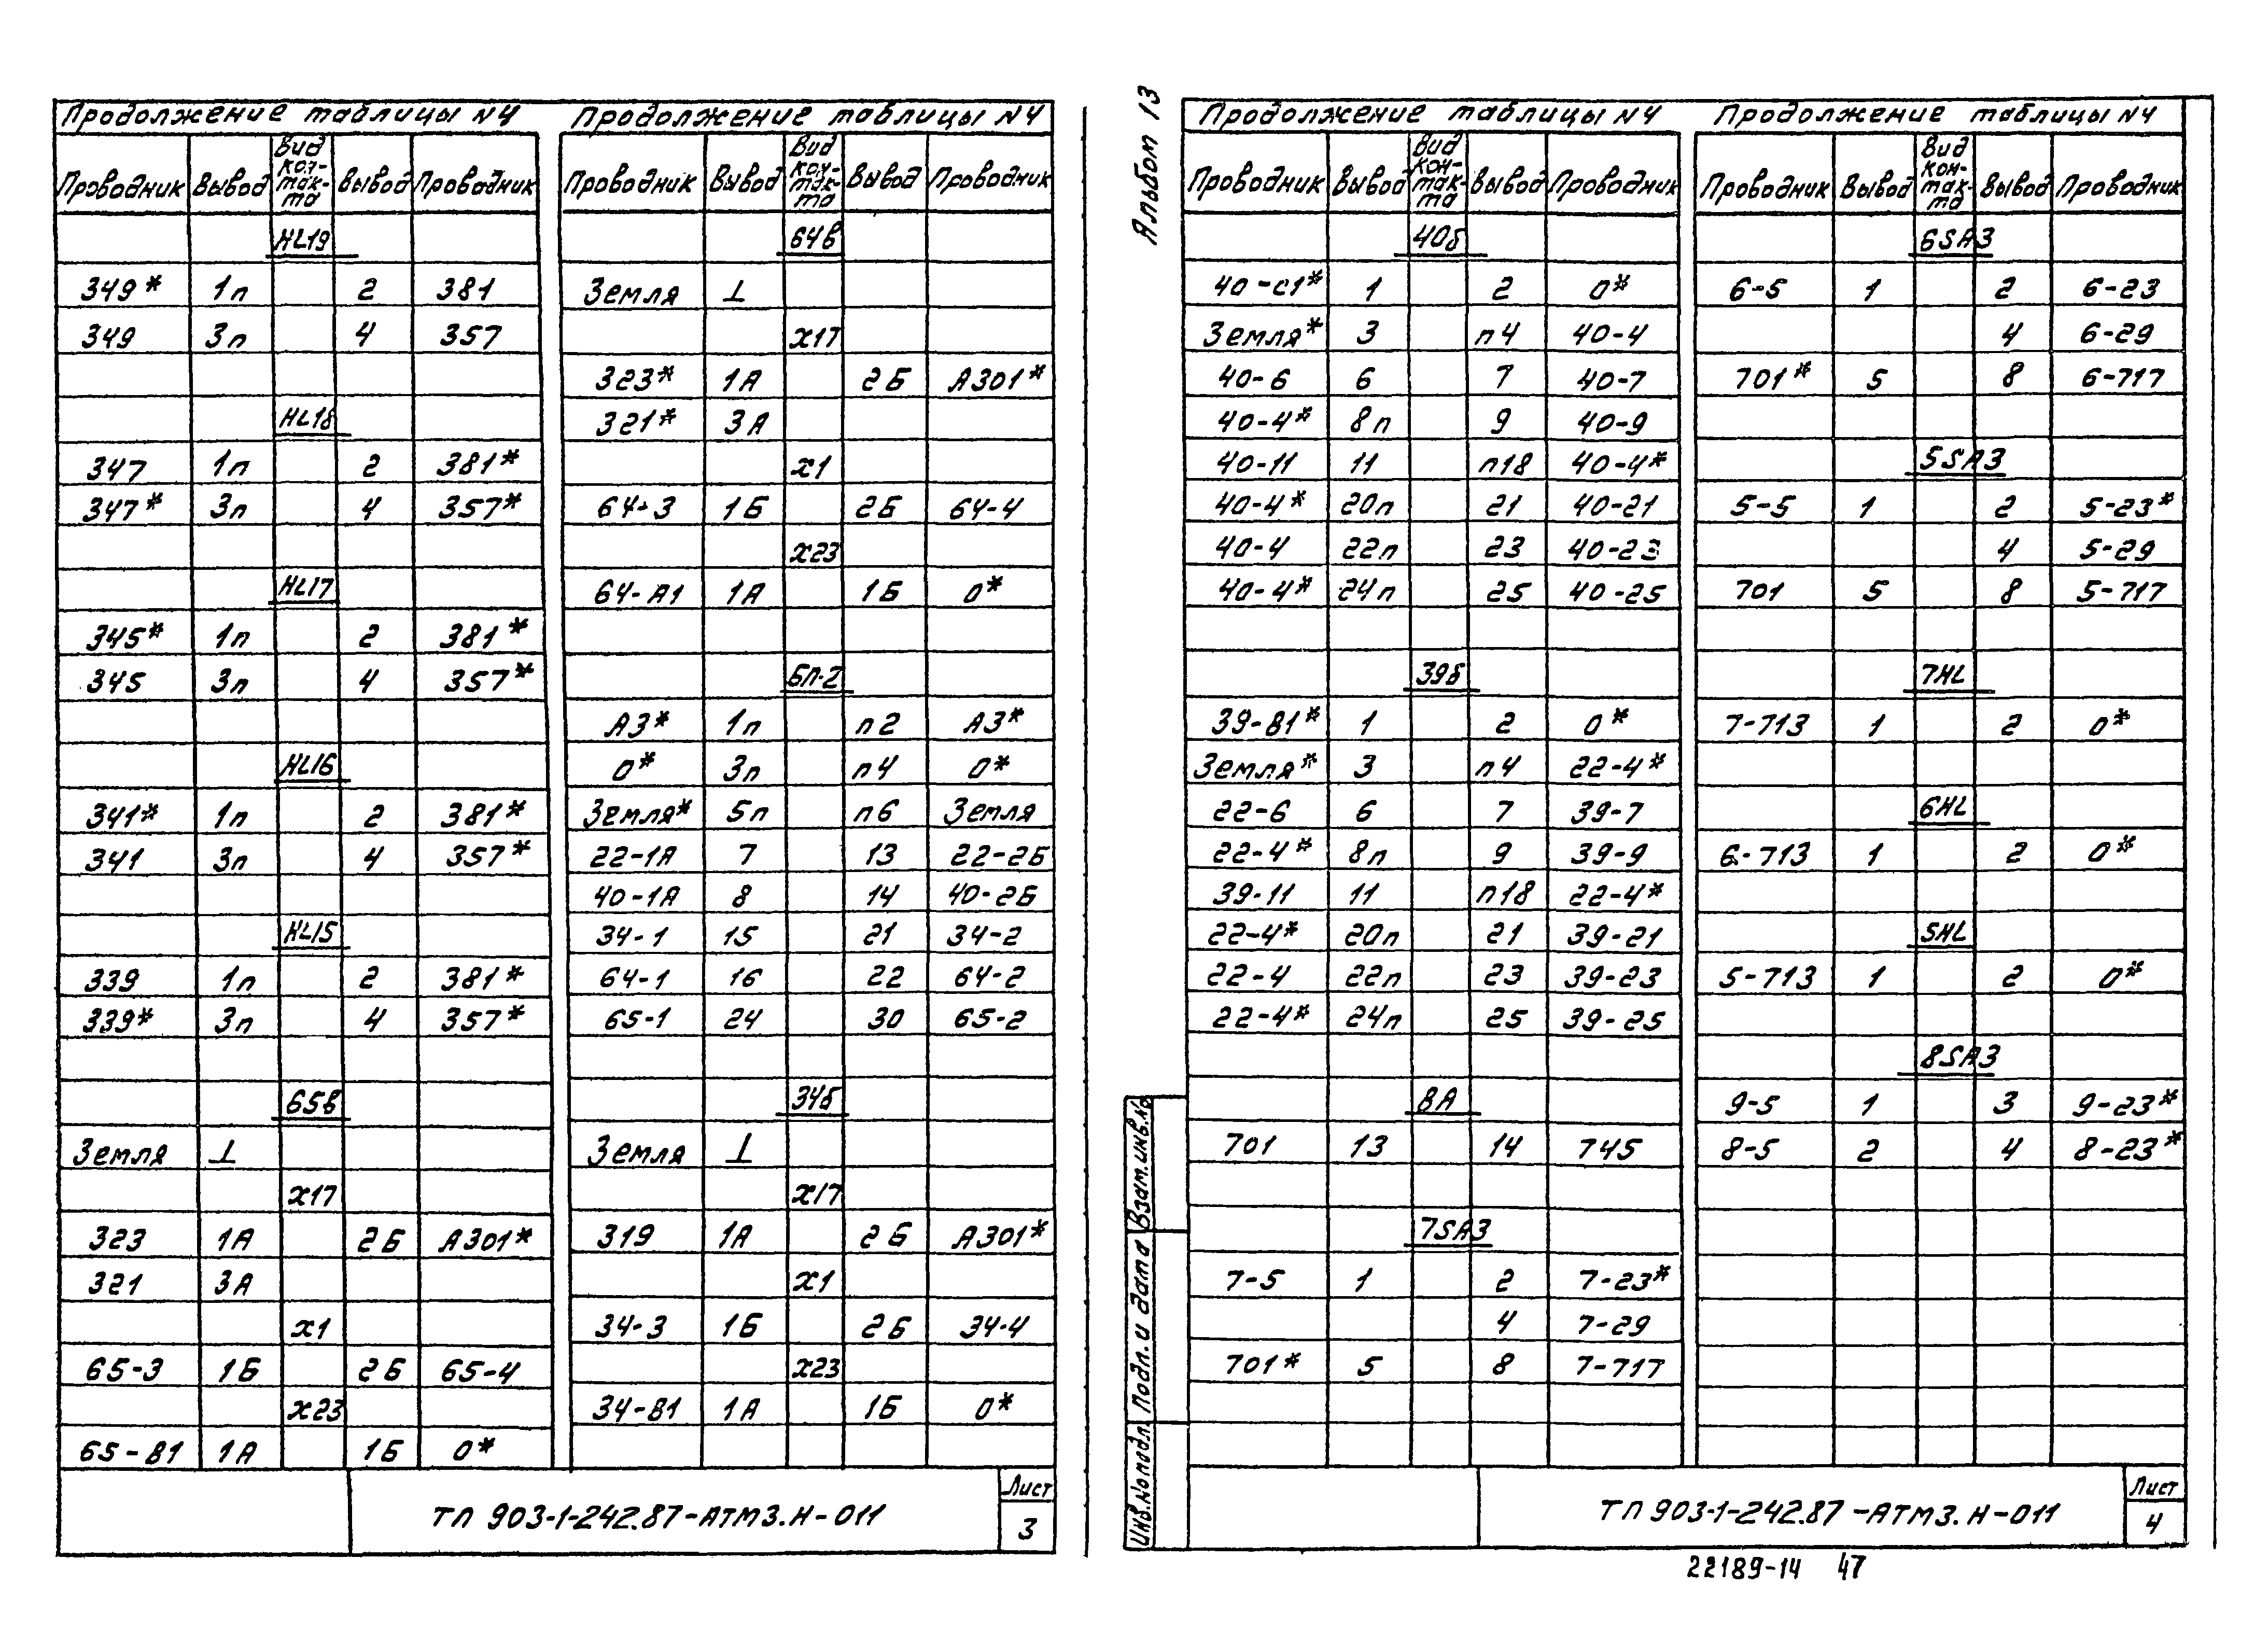 Продолжение таблицы N4
Проводник Вывод Вид кон-так-та Вывод Проводник
HL19
349* 1п 2 381
349 3п 4 357
HL18
347 1п 2 381*
347* 3п 4 357*
HL17
345* 1п 2 381*
345 3п 4 357*
HL16
341* 1п 2 381*
341 3п 4 357*
HL15
339 1п 2 381*
339* 3п 4 357*
65в
Земля ⊥
х17
323 1А 2Б А301*
321 3А
х1
65-3 1Б 2Б 65-4
х23
65-В1 1А 1Б 0*
Продолжение таблицы N4
Проводник Вывод Вид кон-так-та Вывод Проводник
64в
Земля ⊥
х17
323* 1А 2Б А301*
321* 3А
х1
64-3 1Б 2Б 64-4
х23
64-А1 1А 1Б 0*
БП-2
А3* 1п п2 А3*
0* 3п п4 0*
Земля* 5п п6 Земля
22-1А 7 13 22-2Б
40-1А 8 14 40-2Б
34-1 15 21 34-2
64-1 16 22 64-2
65-1 24 30 65-2
34б
Земля ⊥
х17
319 1А 2Б А301*
х1
34-3 1Б 2Б 34-4
х23
34-В1 1А 1Б 0*
ТП 903-1-242.87-АТМ3.Н-011
Лист
3
Альбом 13
Продолжение таблицы N4
Проводник Вывод Вид кон-так-та Вывод Проводник
40б
40-С1* 1 2 0*
Земля* 3 п4 40-4
40-6 6 7 40-7
40-4* 8п 9 40-9
40-11 11 п18 40-4*
40-4* 20п 21 40-21
40-4 22п 23 40-23
40-4* 24п 25 40-25
39б
39-В1* 1 2 0*
Земля* 3 п4 22-4*
22-6 6 7 39-7
22-4* 8п 9 39-9
39-11 11 п18 22-4*
22-4* 20п 21 39-21
22-4 22п 23 39-23
22-4* 24п 25 39-25
8А
701 13 14 745
7SA3
7-5 1 2 7-23*
4 7-29
701* 5 8 7-717
Продолжение таблицы N4
Проводник Вывод Вид кон-так-та Вывод Проводник
6SA3
6-5 1 2 6-23
4 6-29
701* 5 8 6-717
5SA3
5-5 1 2 5-23*
4 5-29
701 5 8 5-717
7HL
7-713 1 2 0*
6HL
6-713 1 2 0*
5HL
5-713 1 2 0*
8SA3
9-5 1 3 9-23*
8-5 2 4 8-23*
Взам.инв.№
Подп. и дата
Инв.№подл.
ТП 903-1-242.87-АТМ3.Н-011
Лист
4
22189-14 47